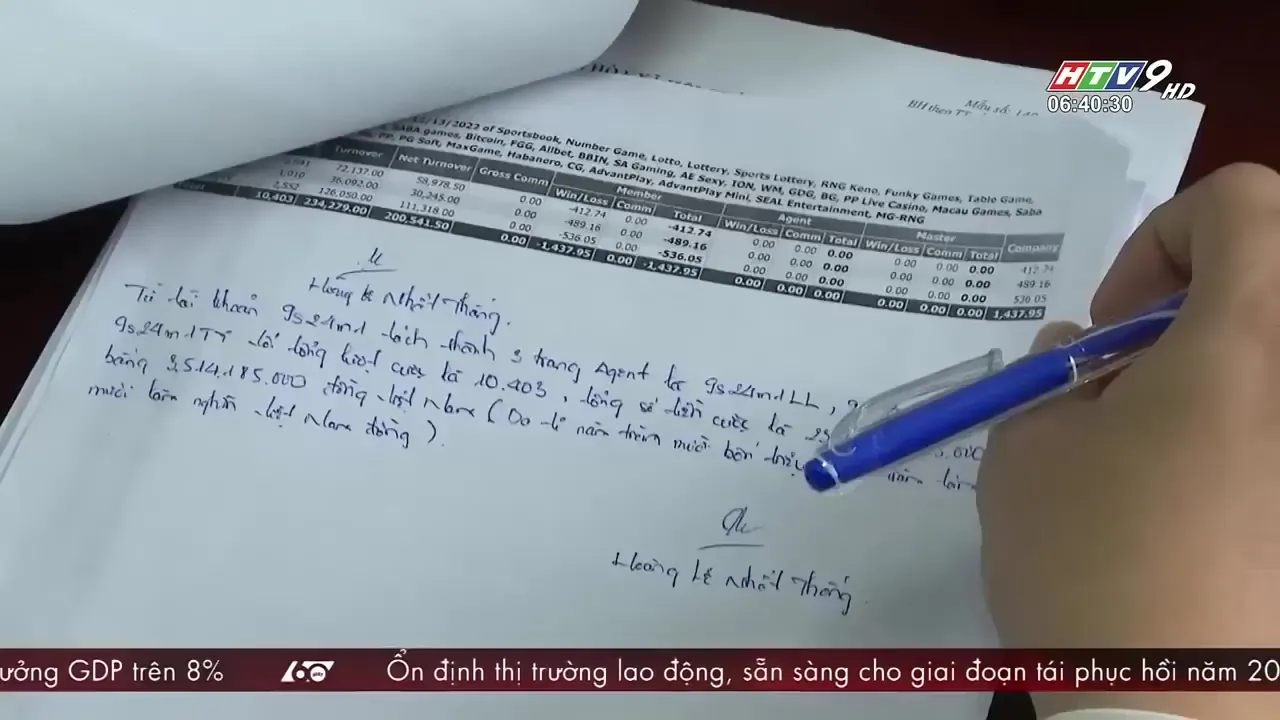 HTV9 HD
06:40:30
BH theo TT
Mẫu số:
/13/2022 of Sportsbook, Number Game, Lotto, Lottery, Sports Lottery, RNG Keno, Funky Games, Table Game,
SABA games, Bitcoin, FGG, Allbet, BBIN, SA Gaming, AE Sexy, ION, WM, GDG, BG, PP Live Casino, Macau Games, Saba
PP, PG Soft, MaxGame, Habanero, CG, AdvantPlay, AdvantPlay Mini, SEAL Entertainment, MG-RNG
Turnover Net Turnover Gross Comm Member Agent Master Company
Win/Loss Comm Total Win/Loss Comm Total Win/Loss Comm Total
72,137.00 58,978.50 0.00 -412.74 0.00 -412.74 0.00 0.00 0.00 0.00 0.00 0.00 412.74
1,010 36,092.00 30,245.00 0.00 -489.16 0.00 -489.16 0.00 0.00 0.00 0.00 0.00 0.00 489.16
2,552 126,050.00 111,318.00 0.00 -536.05 0.00 -536.05 0.00 0.00 0.00 0.00 0.00 0.00 536.05
10,403 234,279.00 200,541.50 0.00 -1,437.95 0.00 -1,437.95 0.00 0.00 0.00 0.00 0.00 0.00 1,437.95
Hoàng Lê Nhất Thống.
Từ tài khoản 9s24m1 tách thành 3 trang Agent là 9s24m1LL,
9s24m1TT với tổng lượt cược là 10.403, tổng số tiền cược là
bằng 3.514.185.000 đồng Việt Nam (Ba tỉ năm trăm mười bốn triệu trăm tám
mươi lăm nghìn Việt Nam đồng).
Hoàng Lê Nhất Thống
ưởng GDP trên 8% 60 giây Ổn định thị trường lao động, sẵn sàng cho giai đoạn tái phục hồi năm 20